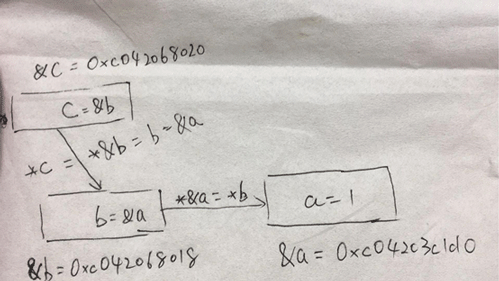 &C = 0xc042068020
C = &b
*C = *&b = b = &a
b = &a
*&a = *b
a = 1
&b = 0xc042068018
&a = 0xc042c3c1d0